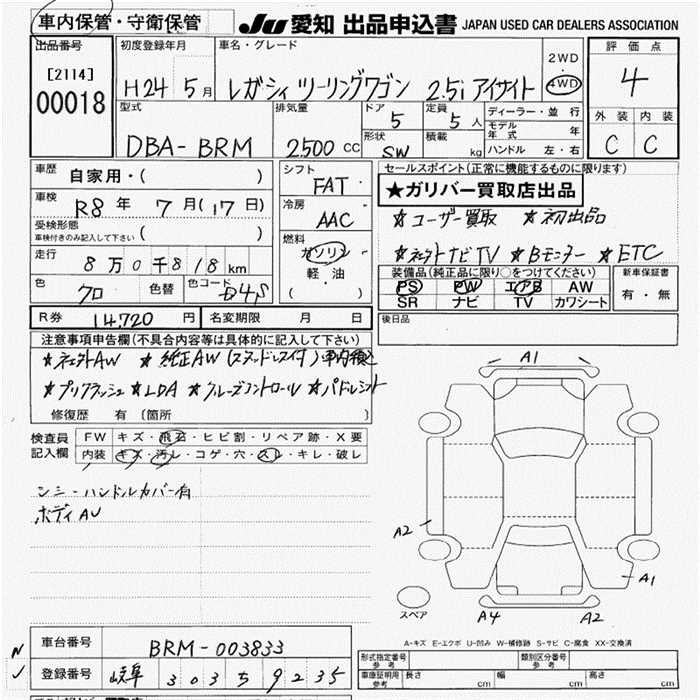 車内保管・守衛保管
JU 愛知 出品申込書 JAPAN USED CAR DEALERS ASSOCIATION
出品番号
[2114]
00018
初度登録年月
H24 5月
車名・グレード
レガシィ ツーリングワゴン 2.5i アイサイト
2WD
4WD
評価点
4
外装 内装
C C
型式
DBA-BRM
排気量
2500 CC
ドア
5
定員
5人
形状
SW
積載
kg
ディーラー・並行
モデル年式 年
ハンドル 左・右
車歴
自家用・( )
車検
R8年 7月(17日)
受検形態
車検付きのみ記入して下さい ( )
走行
8万0千818km
色
クロ
色替
色コード
D4S
シフト
FAT
冷房
AAC
燃料
ガソリン
軽・油
( )
セールスポイント(正常に機能するものに限ります)
★ガリバー買取店出品
★ユーザー買取 ★初出品
★ネクストナビTV ★Bモニター ★ETC
装備品(純正品に限り○をつけてください)
PS PW エアB AW
SR ナビ TV カワシート
新車保証書
有・無
R券 14,720円
名変期限 月 日
後日品
注意事項申告欄(不具合内容等は具体的に記入して下さい)
★ネクストAW ★純正AW(スタッドレス付)車内積込
★プリクラッシュ ★LDA ★クルーズコントロール ★パドルシフト
修復歴 有 (箇所 )
検査員記入欄
FW キズ・飛石・ヒビ割・リペア跡・X要
内装 キズ・汚レ・コゲ・穴・スレ・キレ・破レ
シミー ハンドルカバー有
ボディAU
A1
A2
A1
スペア
A4
A2
A-キズ E-エクボ U-凹み W-補修跡 S-サビ C-腐食 XX-交換済
NJ
車台番号 BRM-003833
登録番号 岐阜 303 5 9235
形式指定番号 参考
類別区分番号 参考
車庫証明用 参考 長さ cm 幅 cm 高さ cm